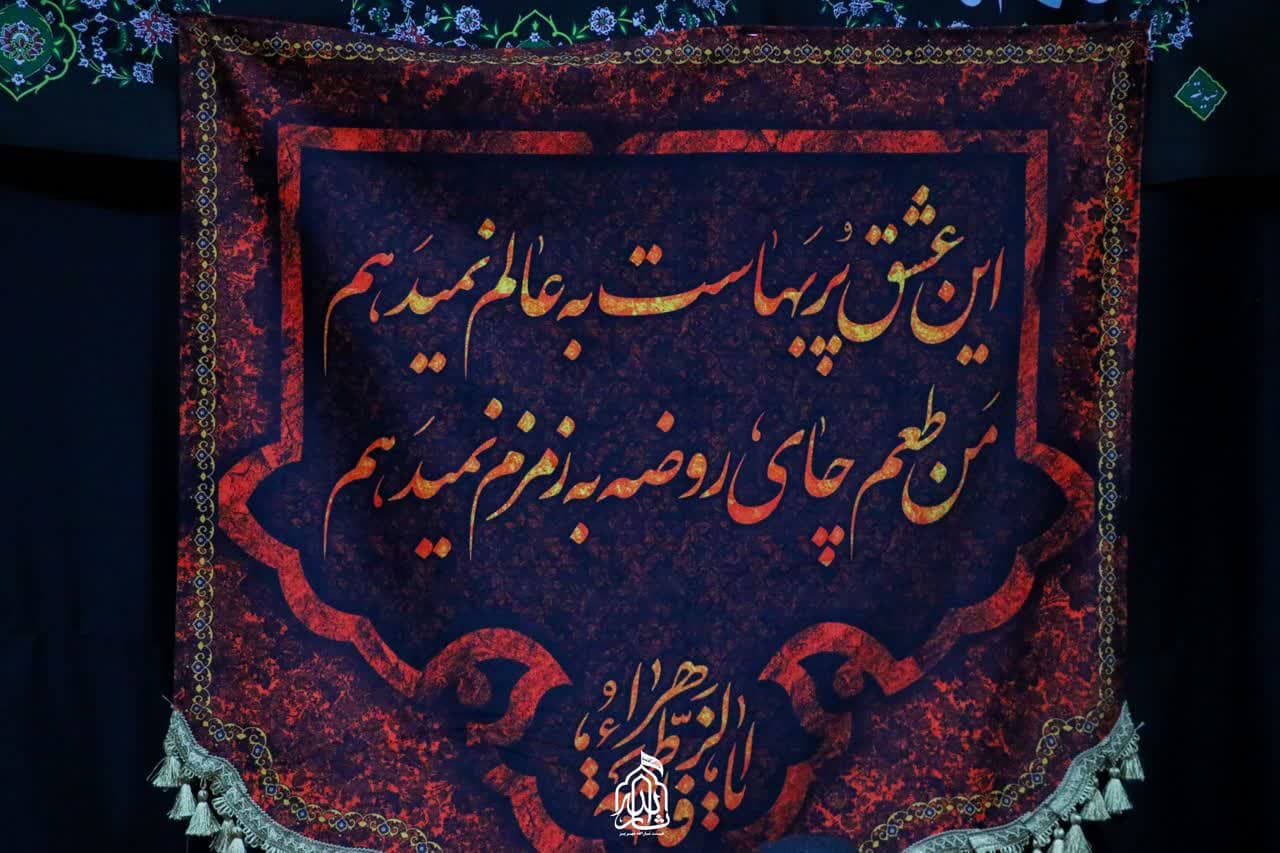 این عشق پُر بَهاست به عالم نمیدَهم
مَن طعم چای روضه به زمزم نمیدَهم
یا فاطمة الزهراء